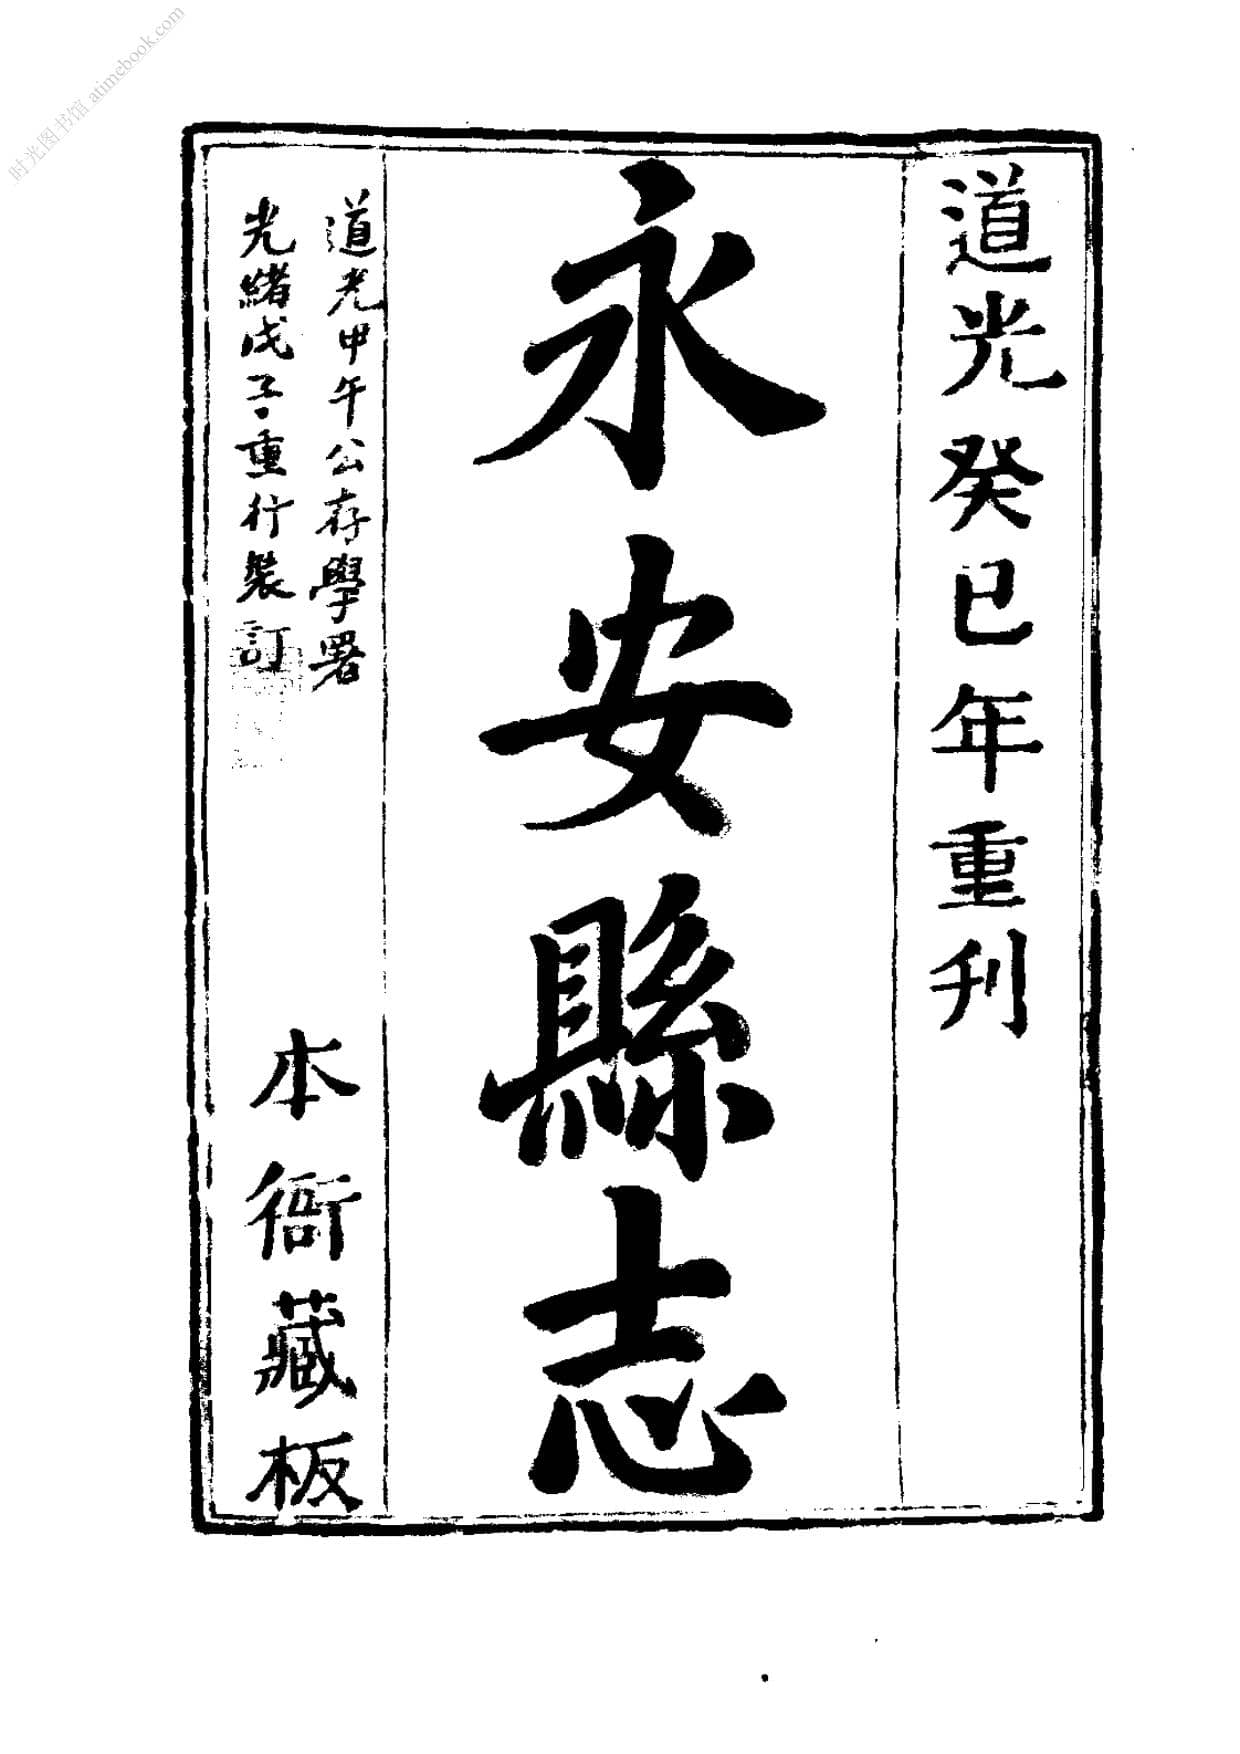 道光癸巳年重刊
永安縣志
道光甲午公存學署
光緒戊子重行裝訂
本衙藏板
时光图书馆 atimebook.com